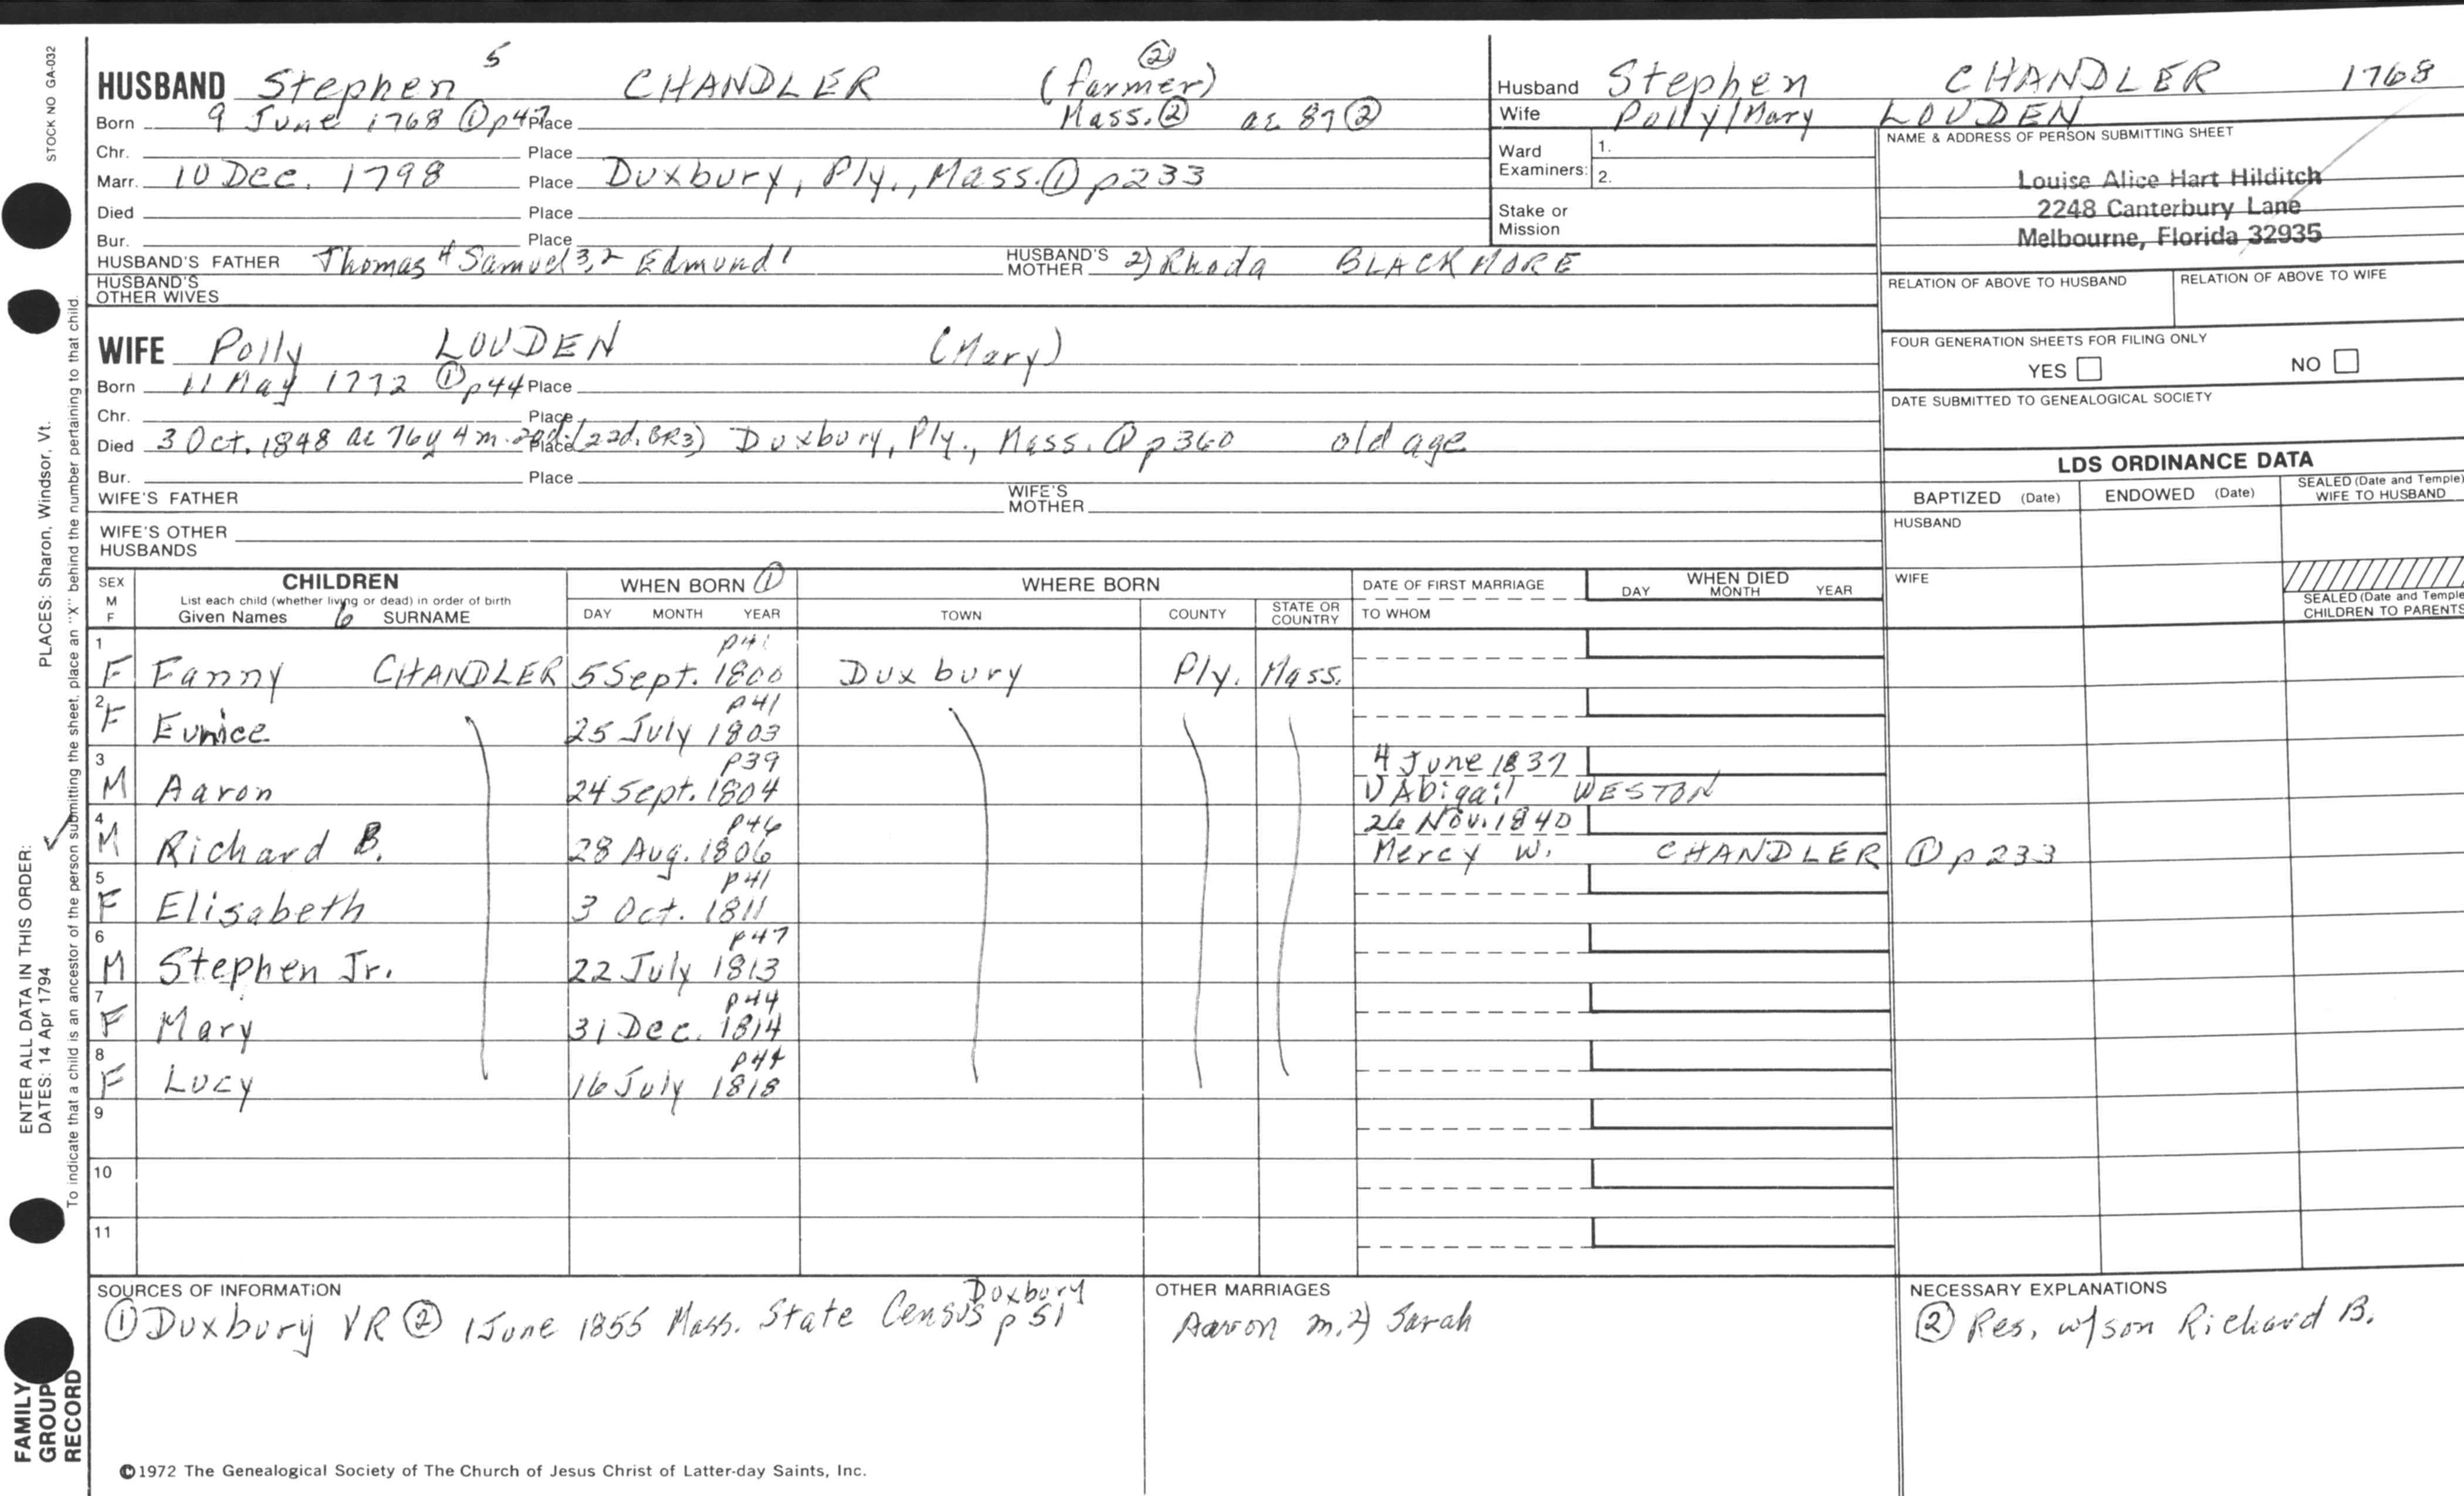 STOCK NO GA-032
PLACES: Sharon, Windsor, Vt.
ENTER ALL DATA IN THIS ORDER:
DATES: 14 Apr 1794
To indicate that a child is an ancestor of the person submitting the sheet, place an "X" behind the number pertaining to that child.
FAMILY GROUP RECORD
HUSBAND Stephen 5 CHANDLER (farmer) ②
Born 9 June 1768 ① p47 Place Mass. ② ae 87 ②
Chr. Place
Marr. 10 Dec. 1798 Place Duxbury, Ply., Mass. ① p233
Died Place
Bur. Place
HUSBAND'S FATHER Thomas 4 Samuel 3,2 Edmund 1 HUSBAND'S MOTHER 2) Rhoda BLACKMORE
HUSBAND'S OTHER WIVES
WIFE Polly LOUDEN (Mary)
Born 11 May 1772 ① p44 Place
Chr. Place
Died 3 Oct. 1848 ae 76y 4m. (22d. GR3) Place Duxbury, Ply., Mass. ① p360 old age
Bur. Place
WIFE'S FATHER WIFE'S MOTHER
WIFE'S OTHER HUSBANDS
Husband Stephen CHANDLER 1768
Wife Polly/Mary LOUDEN
Ward Examiners: 1.
2.
Stake or Mission
NAME & ADDRESS OF PERSON SUBMITTING SHEET
Louise Alice Hart Hilditch
2248 Canterbury Lane
Melbourne, Florida 32935
RELATION OF ABOVE TO HUSBAND RELATION OF ABOVE TO WIFE
FOUR GENERATION SHEETS FOR FILING ONLY
YES NO
DATE SUBMITTED TO GENEALOGICAL SOCIETY
LDS ORDINANCE DATA
BAPTIZED (Date) ENDOWED (Date) SEALED (Date and Temple) WIFE TO HUSBAND
HUSBAND
WIFE
SEALED (Date and Temple) CHILDREN TO PARENTS
SEX M F CHILDREN WHEN BORN ① WHERE BORN DATE OF FIRST MARRIAGE WHEN DIED
List each child (whether living or dead) in order of birth
Given Names 6 SURNAME DAY MONTH YEAR TOWN COUNTY STATE OR COUNTRY TO WHOM DAY MONTH YEAR
1 F Fanny CHANDLER 5 Sept. 1800 p41 Duxbury Ply. Mass.
2 F Eunice 25 July 1803 p41
3 M Aaron 24 Sept. 1804 p39 4 June 1837
1) Abigail WESTON
4 M Richard B. 28 Aug. 1806 p46 26 Nov. 1840
Mercy W. CHANDLER ① p233
5 F Elisabeth 3 Oct. 1811 p41
6 M Stephen Jr. 22 July 1813 p47
7 F Mary 31 Dec. 1814 p44
8 F Lucy 16 July 1818 p44
9
10
11
SOURCES OF INFORMATION
① Duxbury VR ② 1 June 1855 Mass. State Census Duxbury p51
OTHER MARRIAGES
Aaron m. 2) Sarah
NECESSARY EXPLANATIONS
② Res. w/son Richard B.
©1972 The Genealogical Society of The Church of Jesus Christ of Latter-day Saints, Inc.